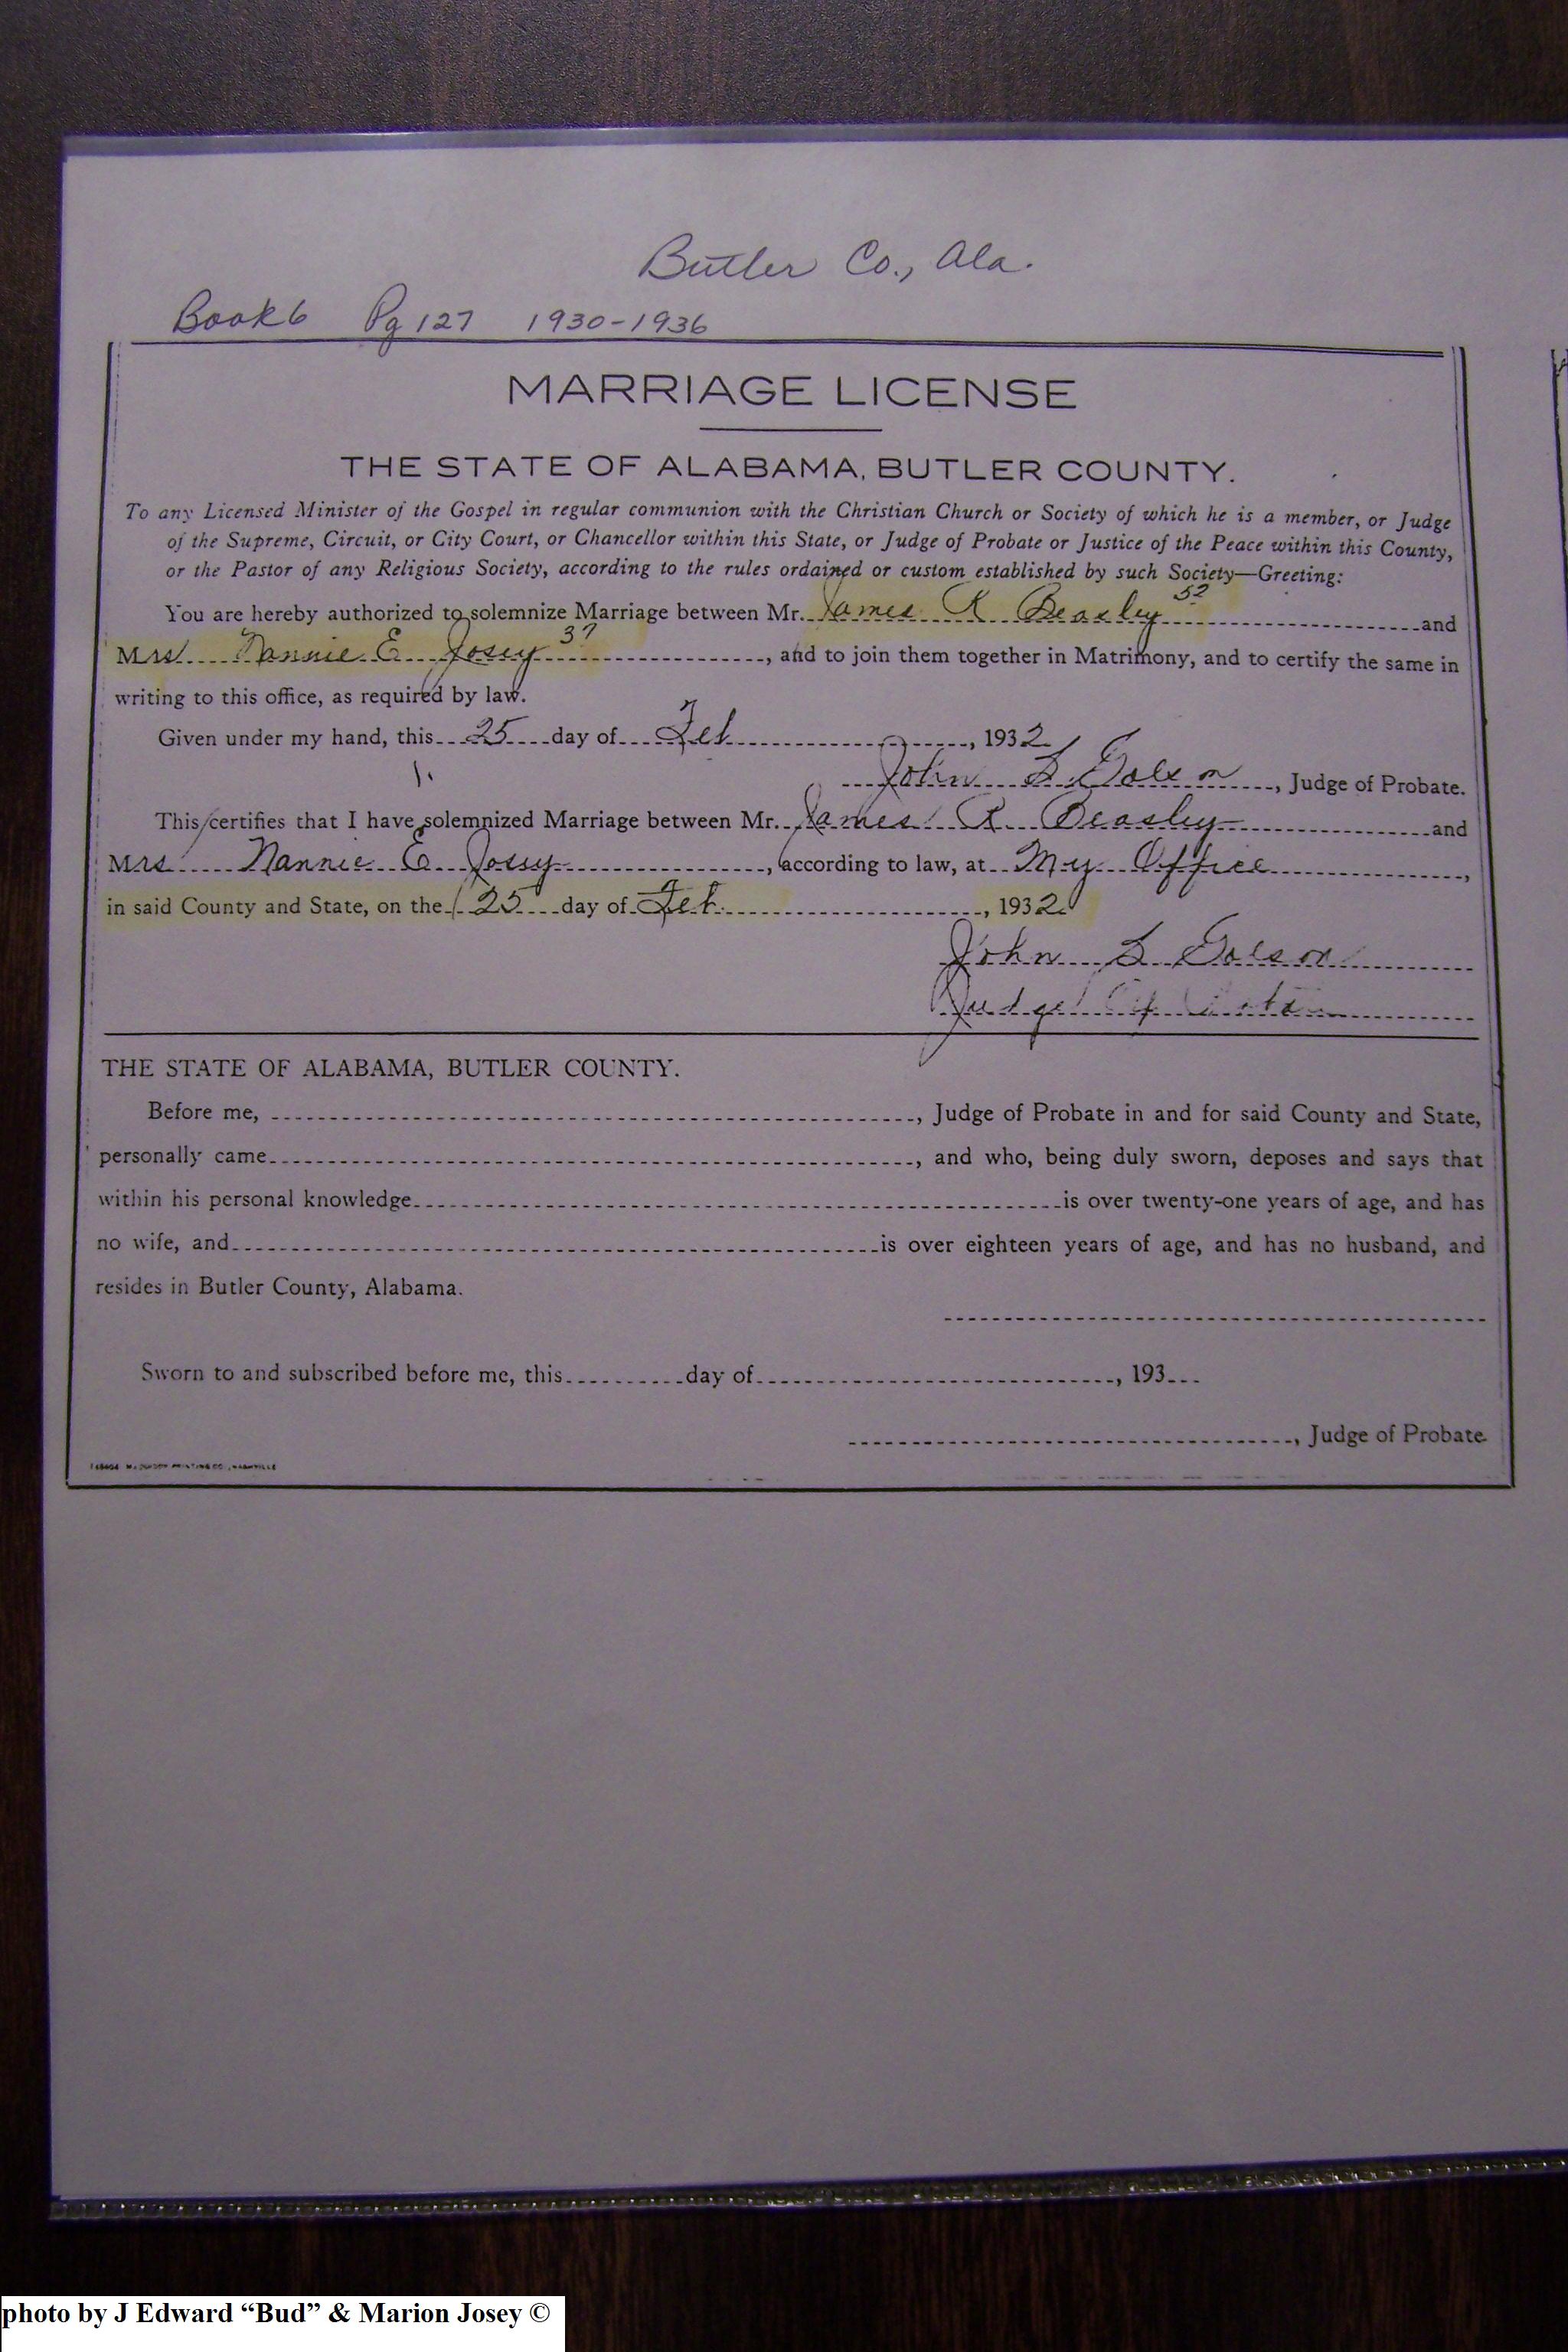 Butler Co., Ala.
Book 6 Pg 127 1930-1936
MARRIAGE LICENSE
THE STATE OF ALABAMA, BUTLER COUNTY.
To any Licensed Minister of the Gospel in regular communion with the Christian Church or Society of which he is a member, or Judge
of the Supreme, Circuit, or City Court, or Chancellor within this State, or Judge of Probate or Justice of the Peace within this County,
or the Pastor of any Religious Society, according to the rules ordained or custom established by such Society—Greeting:
You are hereby authorized to solemnize Marriage between Mr. James R Beasley 52 and
Mrs Nannie E Josey, and to join them together in Matrimony, and to certify the same in
writing to this office, as required by law.
Given under my hand, this 25 day of Feb, 1932
John L Golson, Judge of Probate.
This certifies that I have solemnized Marriage between Mr. James R Beasley and
Mrs Nannie E Josey, according to law, at My Office,
in said County and State, on the 25 day of Feb, 1932
John L Golson
Judge of
THE STATE OF ALABAMA, BUTLER COUNTY.
Before me, , Judge of Probate in and for said County and State,
personally came , and who, being duly sworn, deposes and says that
within his personal knowledge is over twenty-one years of age, and has
no wife, and is over eighteen years of age, and has no husband, and
resides in Butler County, Alabama.
Sworn to and subscribed before me, this day of , 193
, Judge of Probate
photo by J Edward “Bud” & Marion Josey ©